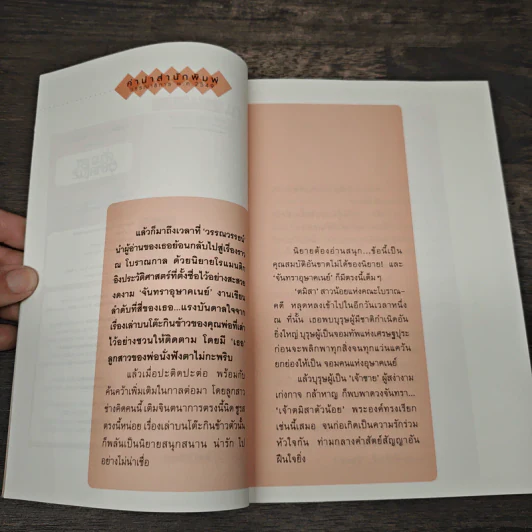 คำนำสำนักพิมพ์
แล้วก็มาถึงเวลาที่ 'วรรณวรรธน์'
นำผู้อ่านของเธอย้อนกลับไปสู่เรื่องราว
ณ โบราณกาล ด้วยนิยายโรแมนติก
อิงประวัติศาสตร์ที่ตั้งชื่อไว้อย่างสะสวย
งดงาม 'จันทราอุษาคเนย์' งานเขียน
ลำดับที่สี่ของเธอ...แรงบันดาลใจจาก
เรื่องเล่าบนโต๊ะกินข้าวของคุณพ่อที่เล่า
ไว้อย่างชวนให้ติดตาม โดยมี 'เธอ'
ลูกสาวของพ่อนั่งฟังตาไม่กะพริบ
แล้วเมื่อปะติดปะต่อ พร้อมกับ
ค้นคว้าเพิ่มเติมในกาลต่อมา โดยลูกสาว
ช่างคิดคนนี้ เติมจินตนาการตรงนี้นิด
ตรงนี้หน่อย เรื่องเล่าบนโต๊ะกินข้าวตัวนั้น
ก็พลันเป็นนิยายสนุกสนาน น่ารัก
อย่างไม่น่าเชื่อ
นิยายต้องอ่านสนุก...ข้อนี้เป็น
คุณสมบัติอันขาดไม่ได้ของนิยาย! และ
'จันทราอุษาคเนย์' ก็มีตรงนี้เต็มๆ
'ตมิสา' สาวน้อยแห่งคณะโบราณ-
คดี หลุดหลงเข้าไปในอีกวันเวลาหนึ่ง
ณ ที่นั้น เธอพบบุรุษผู้มีชาติกำเนิดอัน
ยิ่งใหญ่ บุรุษผู้เป็นจอมทัพแห่งเศรษฐปุระ
ก่อนจะพลิกพาทุกสิ่งจนทุกแว่นแคว้น
ยกย่องให้เป็น จอมคนแห่งอุษาคเนย์
แล้วบุรุษผู้เป็น 'เจ้าชาย' ผู้สง่างาม
เก่งกาจ กล้าหาญ ก็พบพาดวงจันทรา...
'เจ้าตมิสาตัวน้อย' พระองค์ทรงเรียก
เช่นนี้เสมอ จนก่อเกิดเป็นความรักร่วม
หัวใจกัน ท่ามกลางคำสัตย์สัญญาอัน
ฝืนใจยิ่ง